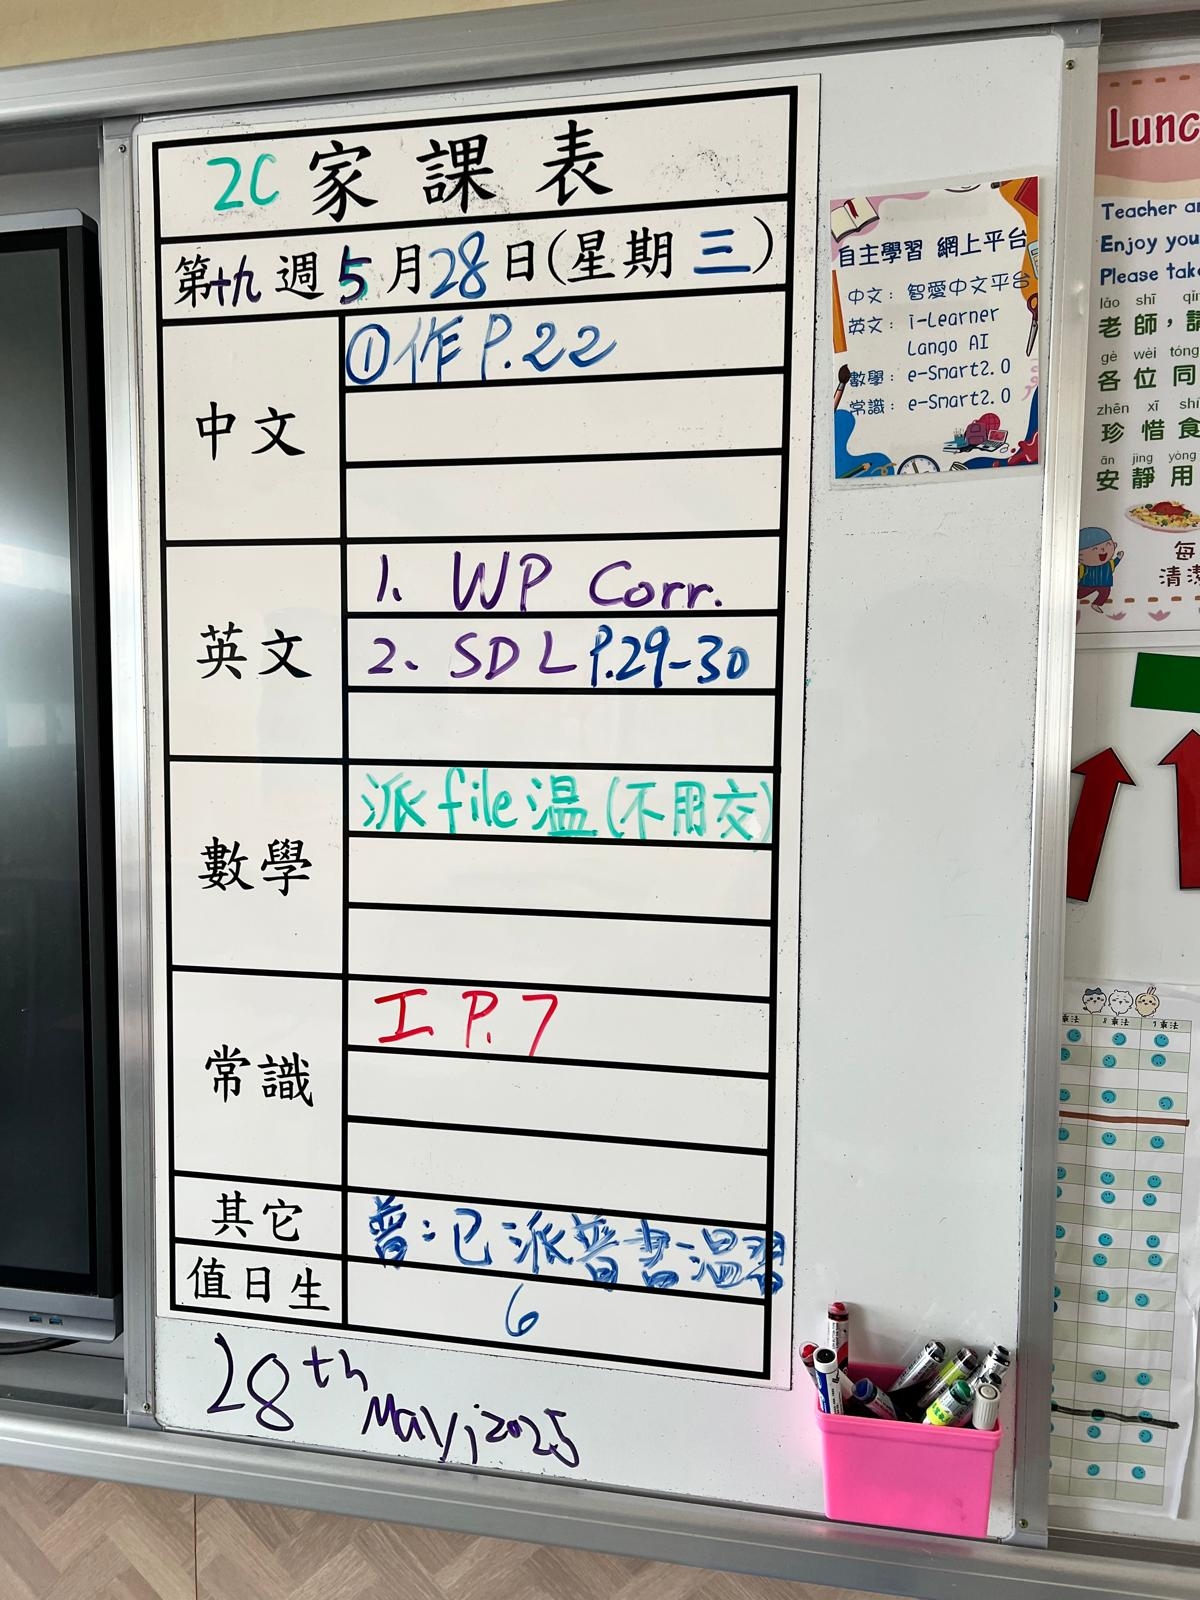 2C 家課表
第十九週5月28日(星期三)
中文
①作 P.22
英文
1. WP Corr.
2. SDL P.29-30
數學
派file溫(不用交)
常識
工 P.7
其它
普:已派普書溫習
值日生
6
28th May, 2025
自主學習 網上平台
中文: 智愛中文平台
英文: i-Learner
Lango AI
數學: e-Smart2.0
常識: e-Smart2.0
Lunc
Teacher an
Enjoy you
Please take
lǎo shī
老師,請
gè wèi tóng
各位同
zhēn xī shí
珍惜食
ān jìng yòng
安靜用
每
清潔
乘法 8乘法 9乘法